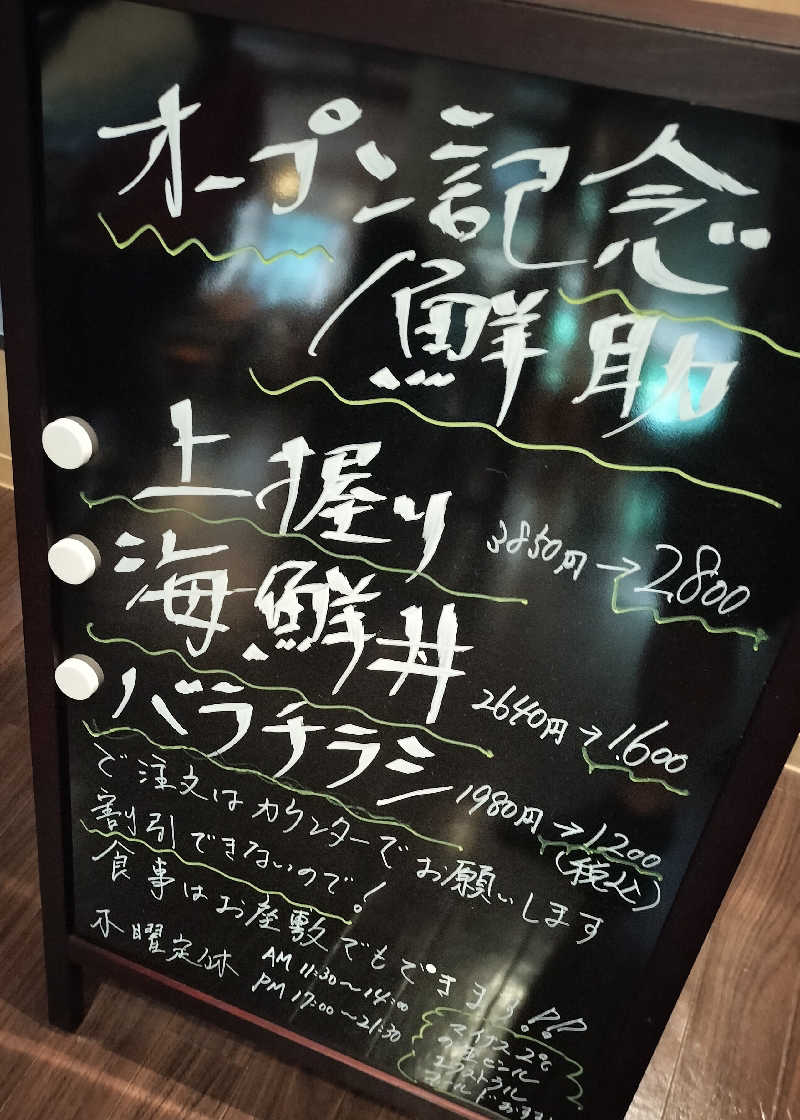 オープン記念
鮮助
上握り 3850円→2800
海鮮丼 2640円→1.600
バラチラシ 1980円→1200
(税込)
ご注文はカウンターでお願いします
割引できないので!
食事はお座敷でもできます!!
木曜定休 AM 11:30〜14:00
PM 17:00〜21:30
マイナス2℃
の生ビール
エクストラコールド